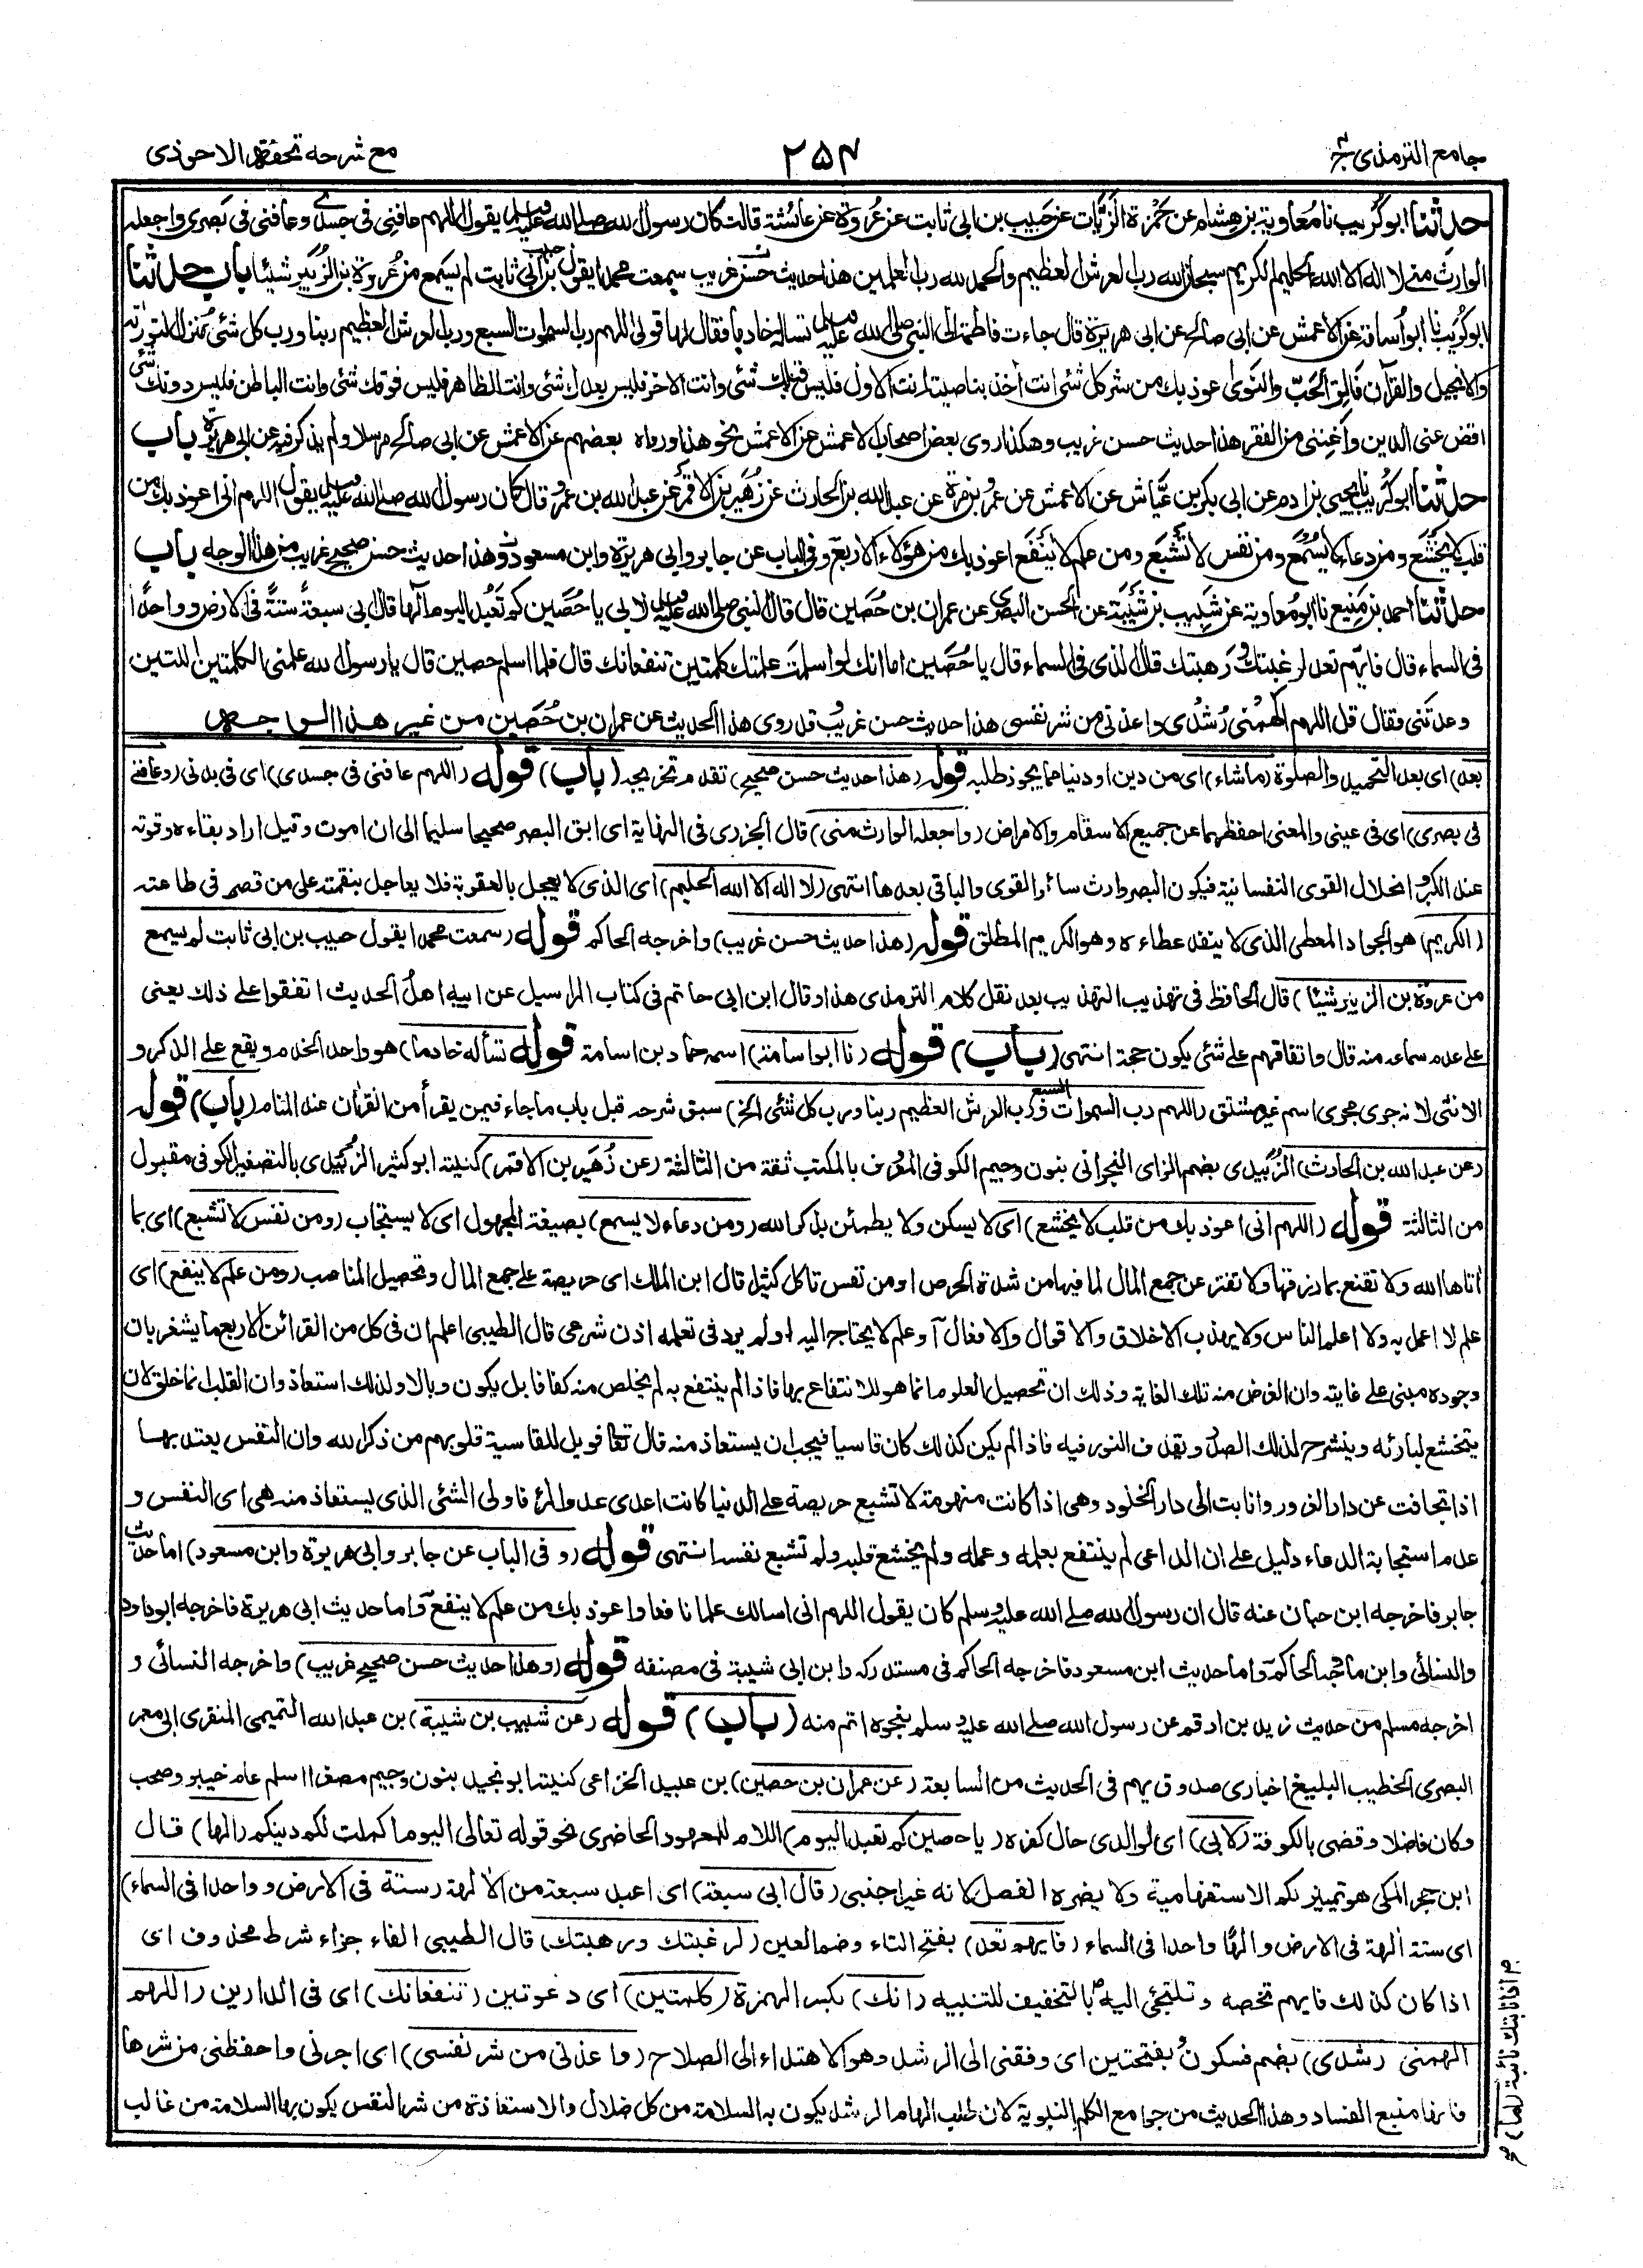 جامع الترمذي ج٤
٢٥٤
مع شرحه تحفة الاحوذي
حدثنا ابو كُرَيب نا مُعاوية بن هِشام عن حَمْزة الزَّيَّات عن حَبِيب بن ابي ثابت عن عُروة عن عائشة قالت كان رسول الله صلى الله عليه وسلم يقول اللهم عافني في جسدي وعافني في بَصَري واجعله
الوارثَ مني لا اله الا الله الحليم الكريم سبحان الله رب العرش العظيم والحمد لله رب العلمين هذا حديث حسن غريب سمعت محمدا يقول حبيب بن ابي ثابت لم يسمع من عُروة بن الزُّبَير شيئا باب حدثنا
ابو كُرَيب نا ابو اُسامة عن الاعمش عن ابي صالح عن ابي هريرة قال جاءت فاطمة الى النبي صلى الله عليه وسلم تساله خادما فقال لها قولي اللهم رب السموات السبع ورب العرش العظيم ربنا ورب كل شئ مُنزل التوراة
والانجيل والقرآن فَالِقَ الحَبِّ والنَّوى اعوذ بك من شر كل شئ انت اٰخذ بناصيته انت الاول فليس قبلك شئ وانت الاٰخر فليس بعدك شئ وانت الظاهر فليس فوقك شئ وانت الباطن فليس دونك شئ
اقض عني الدين وأغنني من الفقر هذا حديث حسن غريب وهكذا روى بعض اصحاب الاعمش عن الاعمش نحو هذا ورواه بعضهم عن الاعمش عن ابي صالح مرسلا ولم يذكر فيه عن ابي هريرة باب
حدثنا ابو كُرَيب نا يحيى بن اٰدم عن ابي بكر بن عَيَّاش عن الاعمش عن عمرو بن مرة عن عبد الله بن الحارث عن زُهَير بن الاقمر عن عبد الله بن عمرو قال كان رسول الله صلى الله عليه وسلم يقول اللهم اني اعوذ بك من
قلب لا يَخْشَع ومن دعاء لا يُسْمَع ومن نفس لا تَشْبَع ومن علم لا يَنْفَع اعوذ بك من هؤلاء الاربع وفي الباب عن جابر وابي هريرة وابن مسعود وهذا حديث حسن صحيح غريب من هذا الوجه باب
حدثنا احمد بن مَنِيع نا ابو مُعاوية عن شَبِيب بن شَيْبة عن الحسن البصري عن عمران بن حُصَين قال قال النبي صلى الله عليه وسلم لابي يا حُصَين كم تَعْبُد اليوم اٰلها قال ابي سبعةً ستةً في الارض وواحدًا
في السماء قال فايّهم تعد لرغبتك ورَهبتك قال الذي في السماء قال يا حُصَين اما انك لو اسلمتَ علمتك كلمتين تنفعانك قال فلما اسلم حصين قال يا رسول الله علمني الكلمتين اللتين
وعدتني فقال قل اللهم اَلْهِمْني رُشْدي واعذني من شر نفسي هذا حديث حسن غريب وقد روي هذا الحديث عن عمران بن حُصَين من غير هذا الوجه
بعد) اي بعد التحميد والصلوة (ما شاء) اي من دين او دنيا مما يجوز طلبه قوله (هذا حديث حسن صحيح) تقدم تخريجه (باب) قوله (اللهم عافني في جسدي) اي في بدني (وعافني
في بصري) اي في عيني والمعنى احفظهما عن جميع الاسقام والامراض (واجعله الوارث مني) قال الجزري في النهاية اي ابق البصر صحيحا سليما الى ان اموت وقيل اراد بقاءه وقوته
عند الكبر وانحلال القوى النفسانية فيكون البصر وارث سائر القوى والباقي بعدها انتهى (لا اله الا الله الحليم) اي الذي لا يعجل بالعقوبة فلا يعاجل بنقمته على من قصر في طاعته
(الكريم) هو الجواد المعطي الذي لا ينفد عطاءه وهو الكريم المطلق قوله (هذا حديث حسن غريب) واخرجه الحاكم قوله (سمعت محمدا يقول حبيب بن ابي ثابت لم يسمع
من عروة بن الزبير شيئا) قال الحافظ في تهذيب التهذيب بعد نقل كلام الترمذي هذا وقال ابن ابي حاتم في كتاب المراسيل عن ابيه اهل الحديث اتفقوا على ذلك يعني
على عدم سماعه منه قال واتفاقهم على شئ يكون حجة انتهى (باب) قوله (نا ابو اسامة) اسمه حماد بن اسامة قوله (تسأله خادما) هو واحد الخدم ويقع على الذكر و
الانثى لانه جرى مجرى اسم غير مشتق (اللهم رب السموات السبع ورب العرش العظيم ربنا ورب كل شئ الخ) سبق شرحه قبل باب ما جاء فيمن يقرأ من القرآن عند المنام (باب) قوله
(عن عبد الله بن الحارث) الزُبيدي بضم الزاي النجراني بنون وجيم الكوفي المعروف بالمكتب ثقة من الثالثة (عن زُهَير بن الاقمر) كنيته ابو كثير الزُبَيدي بالتصغير الكوفي مقبول
من الثالثة قوله (اللهم اني اعوذ بك من قلب لا يخشع) اي لا يسكن ولا يطمئن بذكر الله (ومن دعاء لا يسمع) بصيغة المجهول اي لا يستجاب (ومن نفس لا تشبع) اي بما
اٰتاها الله ولا تقنع بما رزقها ولا تفتر عن جمع المال لما فيها من شدة الحرص او من نفس تاكل كثيرا قال ابن الملك اي حريصة على جمع المال وتحصيل المناصب (ومن علم لا ينفع) اي
علم لا اعمل به ولا اعلم الناس ولا يهذب الاخلاق والاقوال والافعال او علم لا يحتاج اليه او لم يرد في تعلمه اذن شرعي قال الطيبي اعلم ان في كل من القرائن الاربع ما يشعر بان
وجوده مبني على غايته وان الغرض منه تلك الغاية وذلك ان تحصيل العلوم انما هو للانتفاع بها فاذا لم ينتفع به لم يخلص منه كفافا بل يكون وبالا ولذلك استعاذ وان القلب انما خلق لان
يتخشع لبارئه وينشرح لذلك الصدر ويقذف النور فيه فاذا لم يكن كذلك كان قاسيا فيجب ان يستعاذ منه قال تعالى فويل للقاسية قلوبهم من ذكر الله وان النفس يعتد بها
اذا تجافت عن دار الغرور وانابت الى دار الخلود وهي اذا كانت منهومة لا تشبع حريصة على الدنيا كانت اعدى عدو المرء فاولى الشئ الذي يستعاذ منه هي اي النفس و
عدم استجابة الدعاء دليل على ان الداعي لم ينتفع بعلمه وعمله ولم يخشع قلبه ولم تشبع نفسه انتهى قوله (وفي الباب عن جابر وابي هريرة وابن مسعود) اما حديث
جابر فاخرجه ابن حبان عنه قال ان رسول الله صلى الله عليه وسلم كان يقول اللهم اني اسالك علما نافعا واعوذ بك من علم لا ينفع واما حديث ابي هريرة فاخرجه ابو داود
والنسائي وابن ماجه والحاكم واما حديث ابن مسعود فاخرجه الحاكم في مستدركه وابن ابي شيبة في مصنفه قوله (وهذا حديث حسن صحيح غريب) واخرجه النسائي و
اخرجه مسلم من حديث زيد بن ارقم عن رسول الله صلى الله عليه وسلم بنحوه اتم منه (باب) قوله (عن شبيب بن شيبة) بن عبد الله التميمي المنقري ابي معمر
البصري الخطيب البليغ اخباري صدوق يهم في الحديث من السابعة (عن عمران بن حصين) بن عبيد الخزاعي كنيته ابو نجيد بنون وجيم مصغرا اسلم عام خيبر وصحب
وكان فاضلا وقضى بالكوفة (لابي) اي لوالدي حال كفره (يا حصين كم تعبد اليوم) اللام للمعهود الحاضري نحو قوله تعالى اليوم اكملت لكم دينكم (الها) قال
ابن حجر المكي هو تمييز لكم الاستفهامية ولا يضره الفصل لانه غير اجنبي (قال ابي سبعة) اي اعبد سبعة من الاٰلهة (ستة في الارض وواحدا في السماء)
اي ستة الهة في الارض والها واحدا في السماء (فايهم تعد) بفتح التاء وضم العين (لرغبتك ورهبتك) قال الطيبي الفاء جزاء شرط محذوف اي
اذا كان كذلك فايهم تخصه وتلتجئ اليه بالتخفيف للتنبيه (انك) بكسر الهمزة (كلمتين) اي دعوتين (تنفعانك) اي في الدارين (اللهم
الهمني رشدي) بضم فسكون بفتحتين اي وفقني الى الرشد وهو الاهتداء الى الصلاح (واعذني من شر نفسي) اي اجرني واحفظني من شرها
فانها منبع الفساد وهذا الحديث من جوامع الكلم النبوية لان طلب الهام الرشد يكون به السلامة من كل ضلال والاستعاذة من شر النفس يكون بها السلامة من غالب